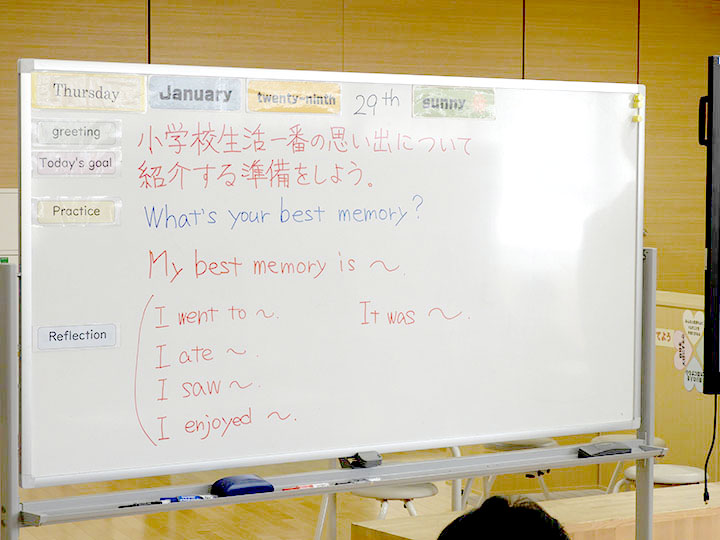 Thursday January twenty-ninth 29th sunny
greeting
小学校生活一番の思い出について
Today's goal
紹介する準備をしよう。
Practice
What's your best memory?
My best memory is ～.
I went to ～. It was ～.
Reflection
I ate ～.
I saw ～.
I enjoyed ～.